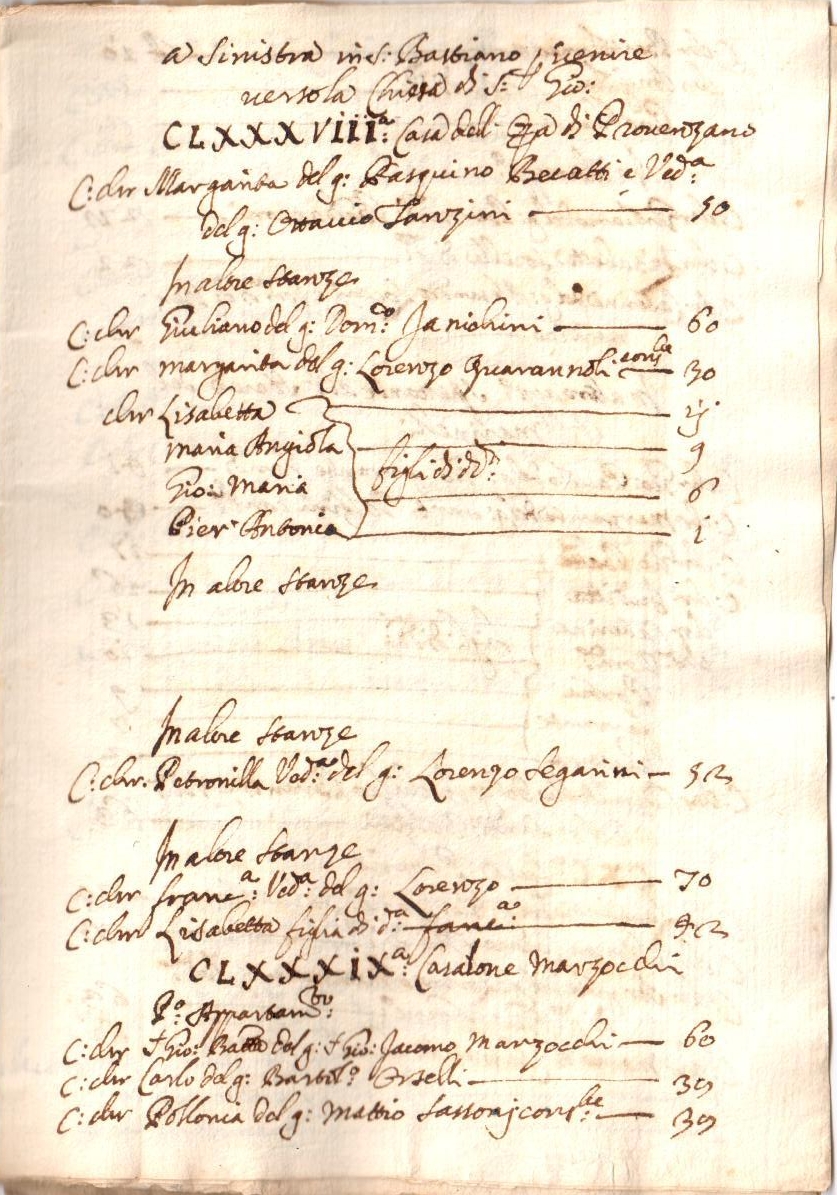 a sinistra in S: Bastiano p venire
verso la Chiesa di S: Gio:
CLXXXVIII.ª Casa dell' di Provenzano
C: chr Margarita del q: Pasquino Becatti e Ved.ª
del q: Ottavio —— 50
In altre stanze
C: chr Giuliano del q: Dom.co —— 60
C: chr margarita del q: Lorenzo cons.te — 30
chr Lisabetta ——
maria Angiola —— 9
Gio: Maria figli di dd.i —— 6
Pier Antonio —— 1
In altre stanze
In altre stanze
C: chr. Petronilla Ved.ª del q: Lorenzo Segarini — 52
In altre stanze
C: chr franc.ª Ved.ª del q: Lorenzo —— 70
C: chr Lisabetta figlia di d.ª franc.ª —— 42
CLXXXIX.ª Casa Marzocchi
P.º Appartam.to:
C: chr Gio: Batta del q: Gio: Jacomo Marzocchi — 60
C: chr Carlo del q: Bartol.º Orselli —— 39
C: chr Pollonia del q: Mattio cons.te — 39